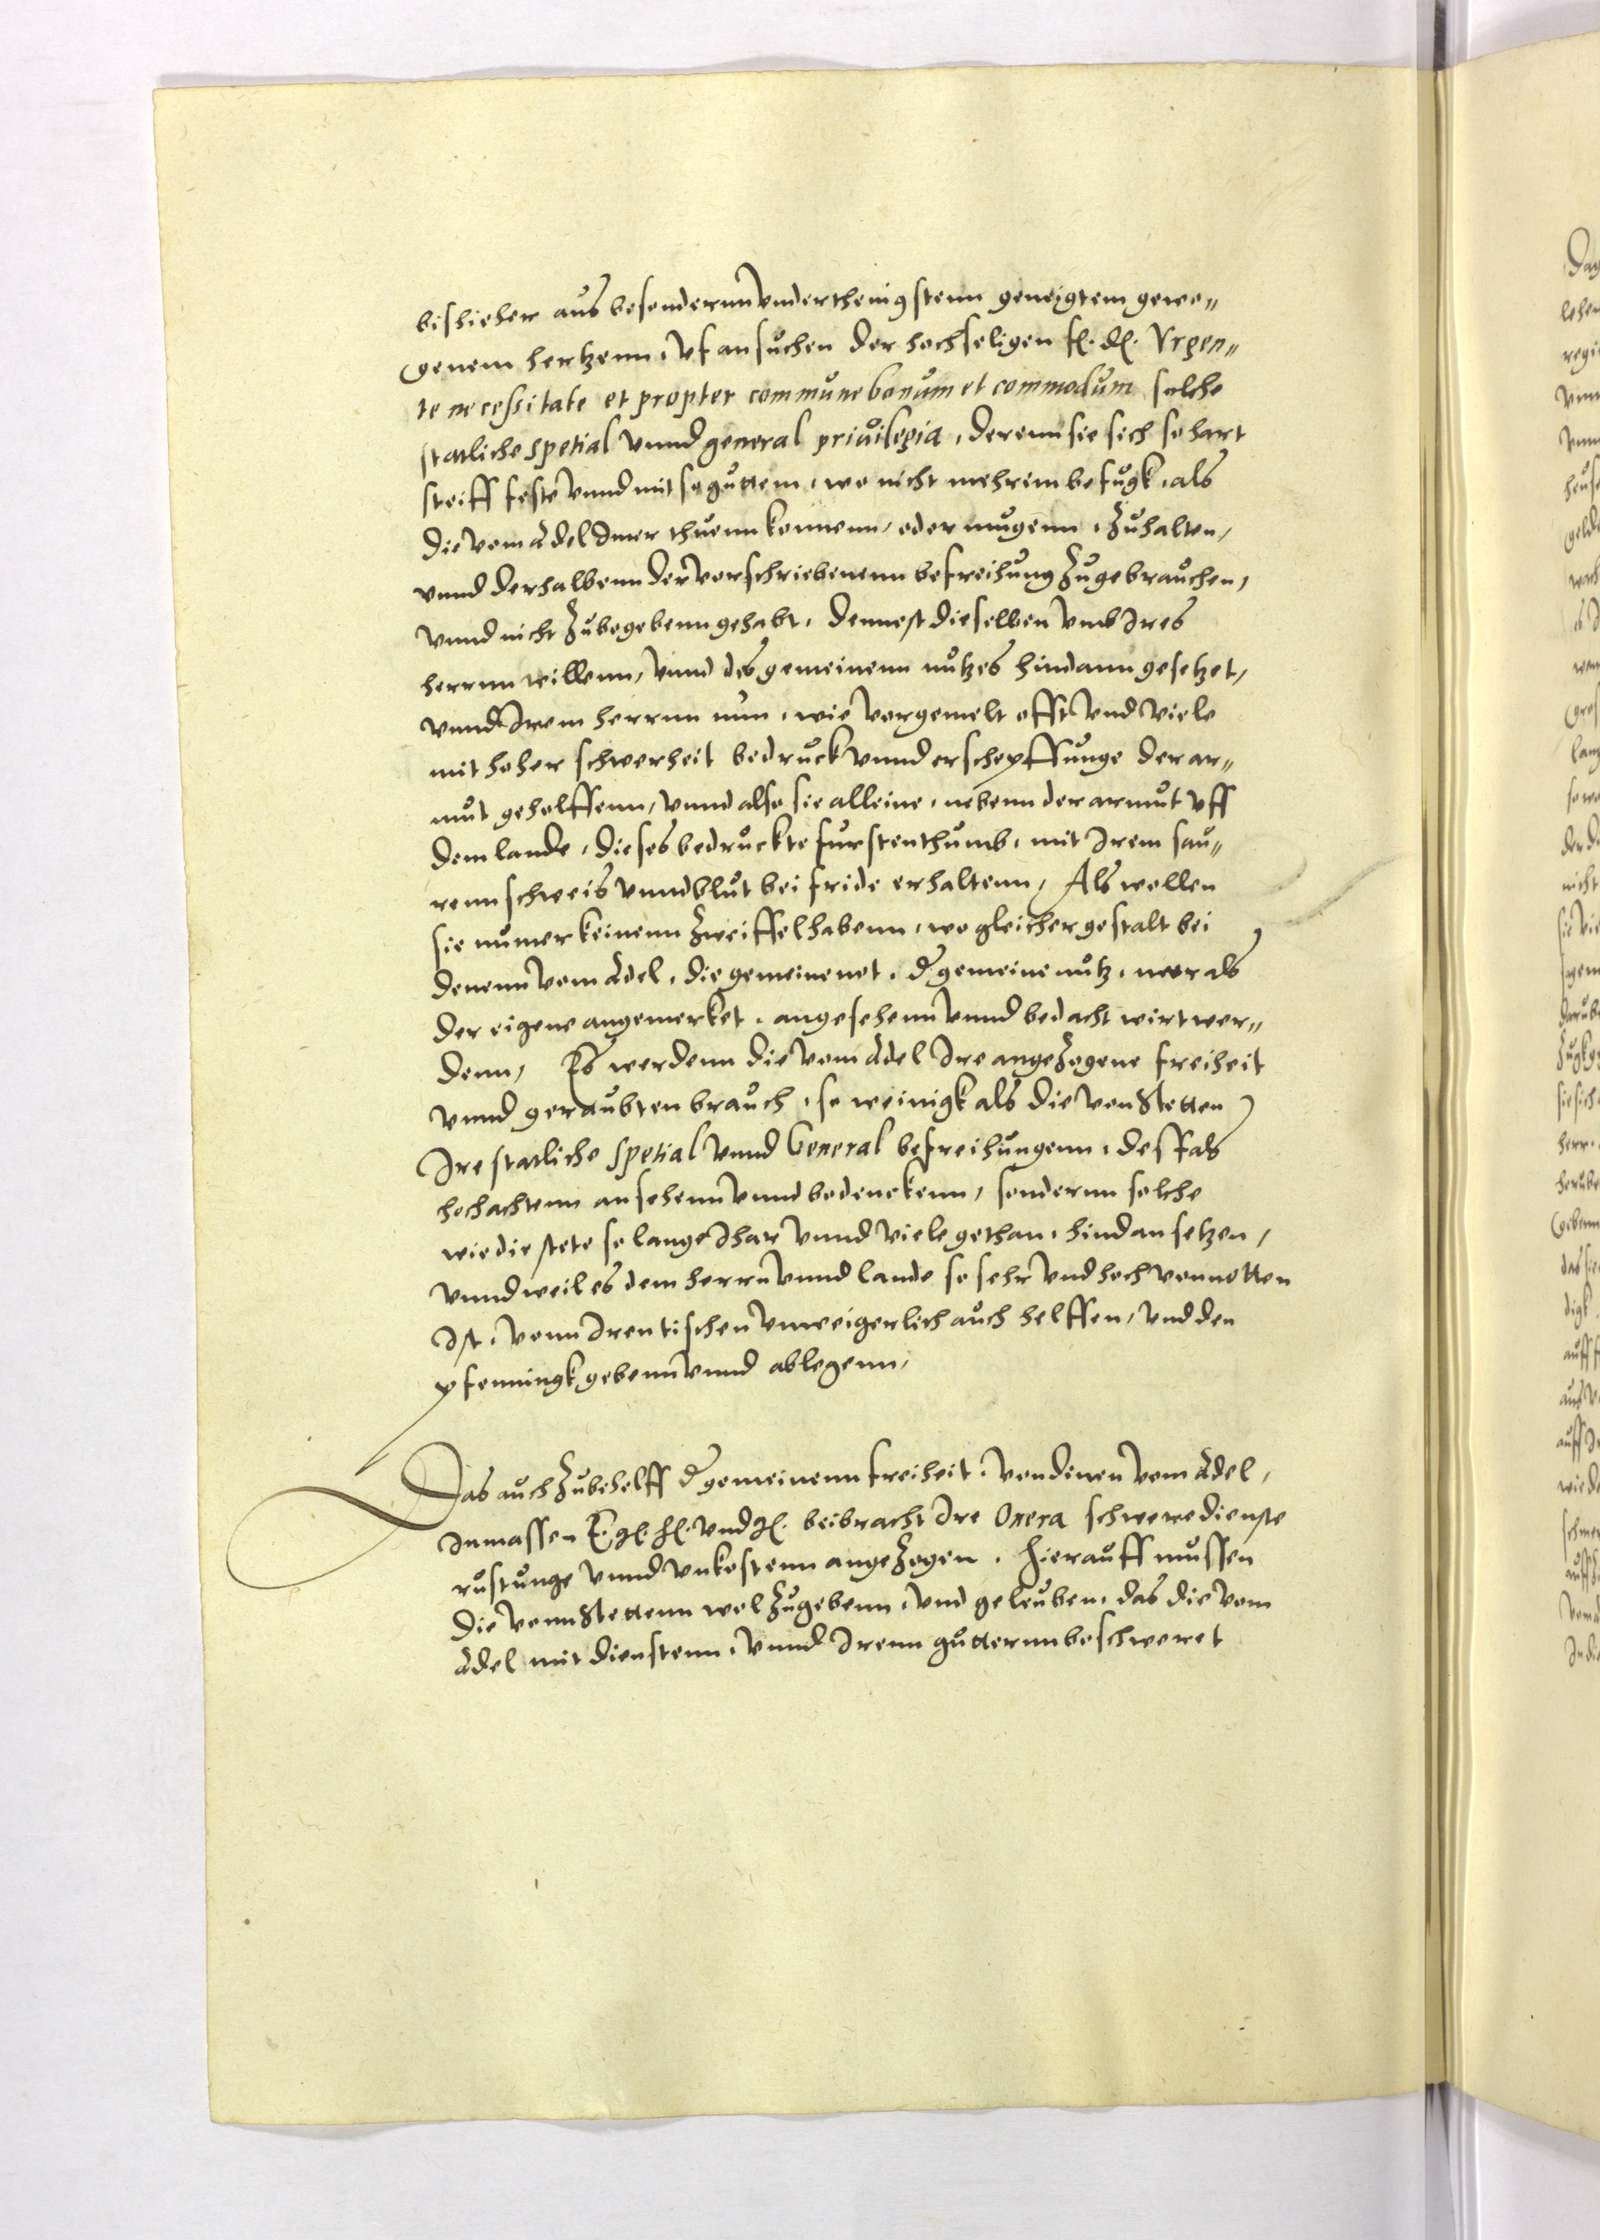 bishieher aus besondernn vnderthenigstenn geneigtem gewo„
genem hertzenn, vf ansuchen der hochseligen f. d. Vrgen„
te necessitate et propter commune bonum et commodum solche
statliche spetial vnnd general priuilegia, derenn sie sich so hart
steiff feste vnnd mit so guttem, wo nicht mehrem befugk, als
die vom Adel Imer thuenn konnenn, oder mugenn, Zuhalten,
vnnd derhalbenn der vorschriebenenn befreihung Zugebrauchen,
vnnd nicht Zubegebenn gehabt, dennost dieselben vmb Ires
herrnn willenn, vnnd des gemeinenn nutzes hindann gesetzet,
vnnd Irem herrnn nun, wie vorgemelt offt vnd viele
mit hoher schwerheit bedruck vnnd erschepffunge der ar„
mut geholffenn, vnnd also sie alleine, nebenn der armut vff
dem lande, dieses bedruckte furstenthumb, mit Irem sau„
renn schweis vnnd blut bei fride erhaltenn, Als wollen
sie numer keinenn Zweiffel habenn, wo gleicher gestalt bei
denenn vom Adel, die gemeine not, d gemeine nutz, meer als
der eigene angemerket, angesehenn vnnd bedacht wirt wer„
denn, Es werdenn die vom Adel Ire angeZogene freiheit
vnnd geraubten brauch, so weinigk als die von Stetten
Ire statliche spetial vnnd General befreihungenn, desfals
hochachtenn ansehenn vnnd bedenckenn, sondernn solche
wie die stete so lange Ihar vnnd viele gethan, hindan setzen,
vnnd weil es dem herrn vnnd lande so sehr vnd hoch vonnotten
Ist, vonn Iren tischen vnweigerlich auch helffen, vnd den
pfenningk gebenn vnnd ablegenn,
Das auch Zubehelff d gemeinenn freiheit, von denen vom Adel,
Inmassen E. g. f. vnd g. beibracht Ire Onera schwere dienste
rustunge vnnd vnkostenn angeZogen, hierauff mussen
die vonn Stettenn wol Zugebenn, vnd geleuben, das die vom
Adel mit dienstenn, vnnd Irenn gutternn beschweret